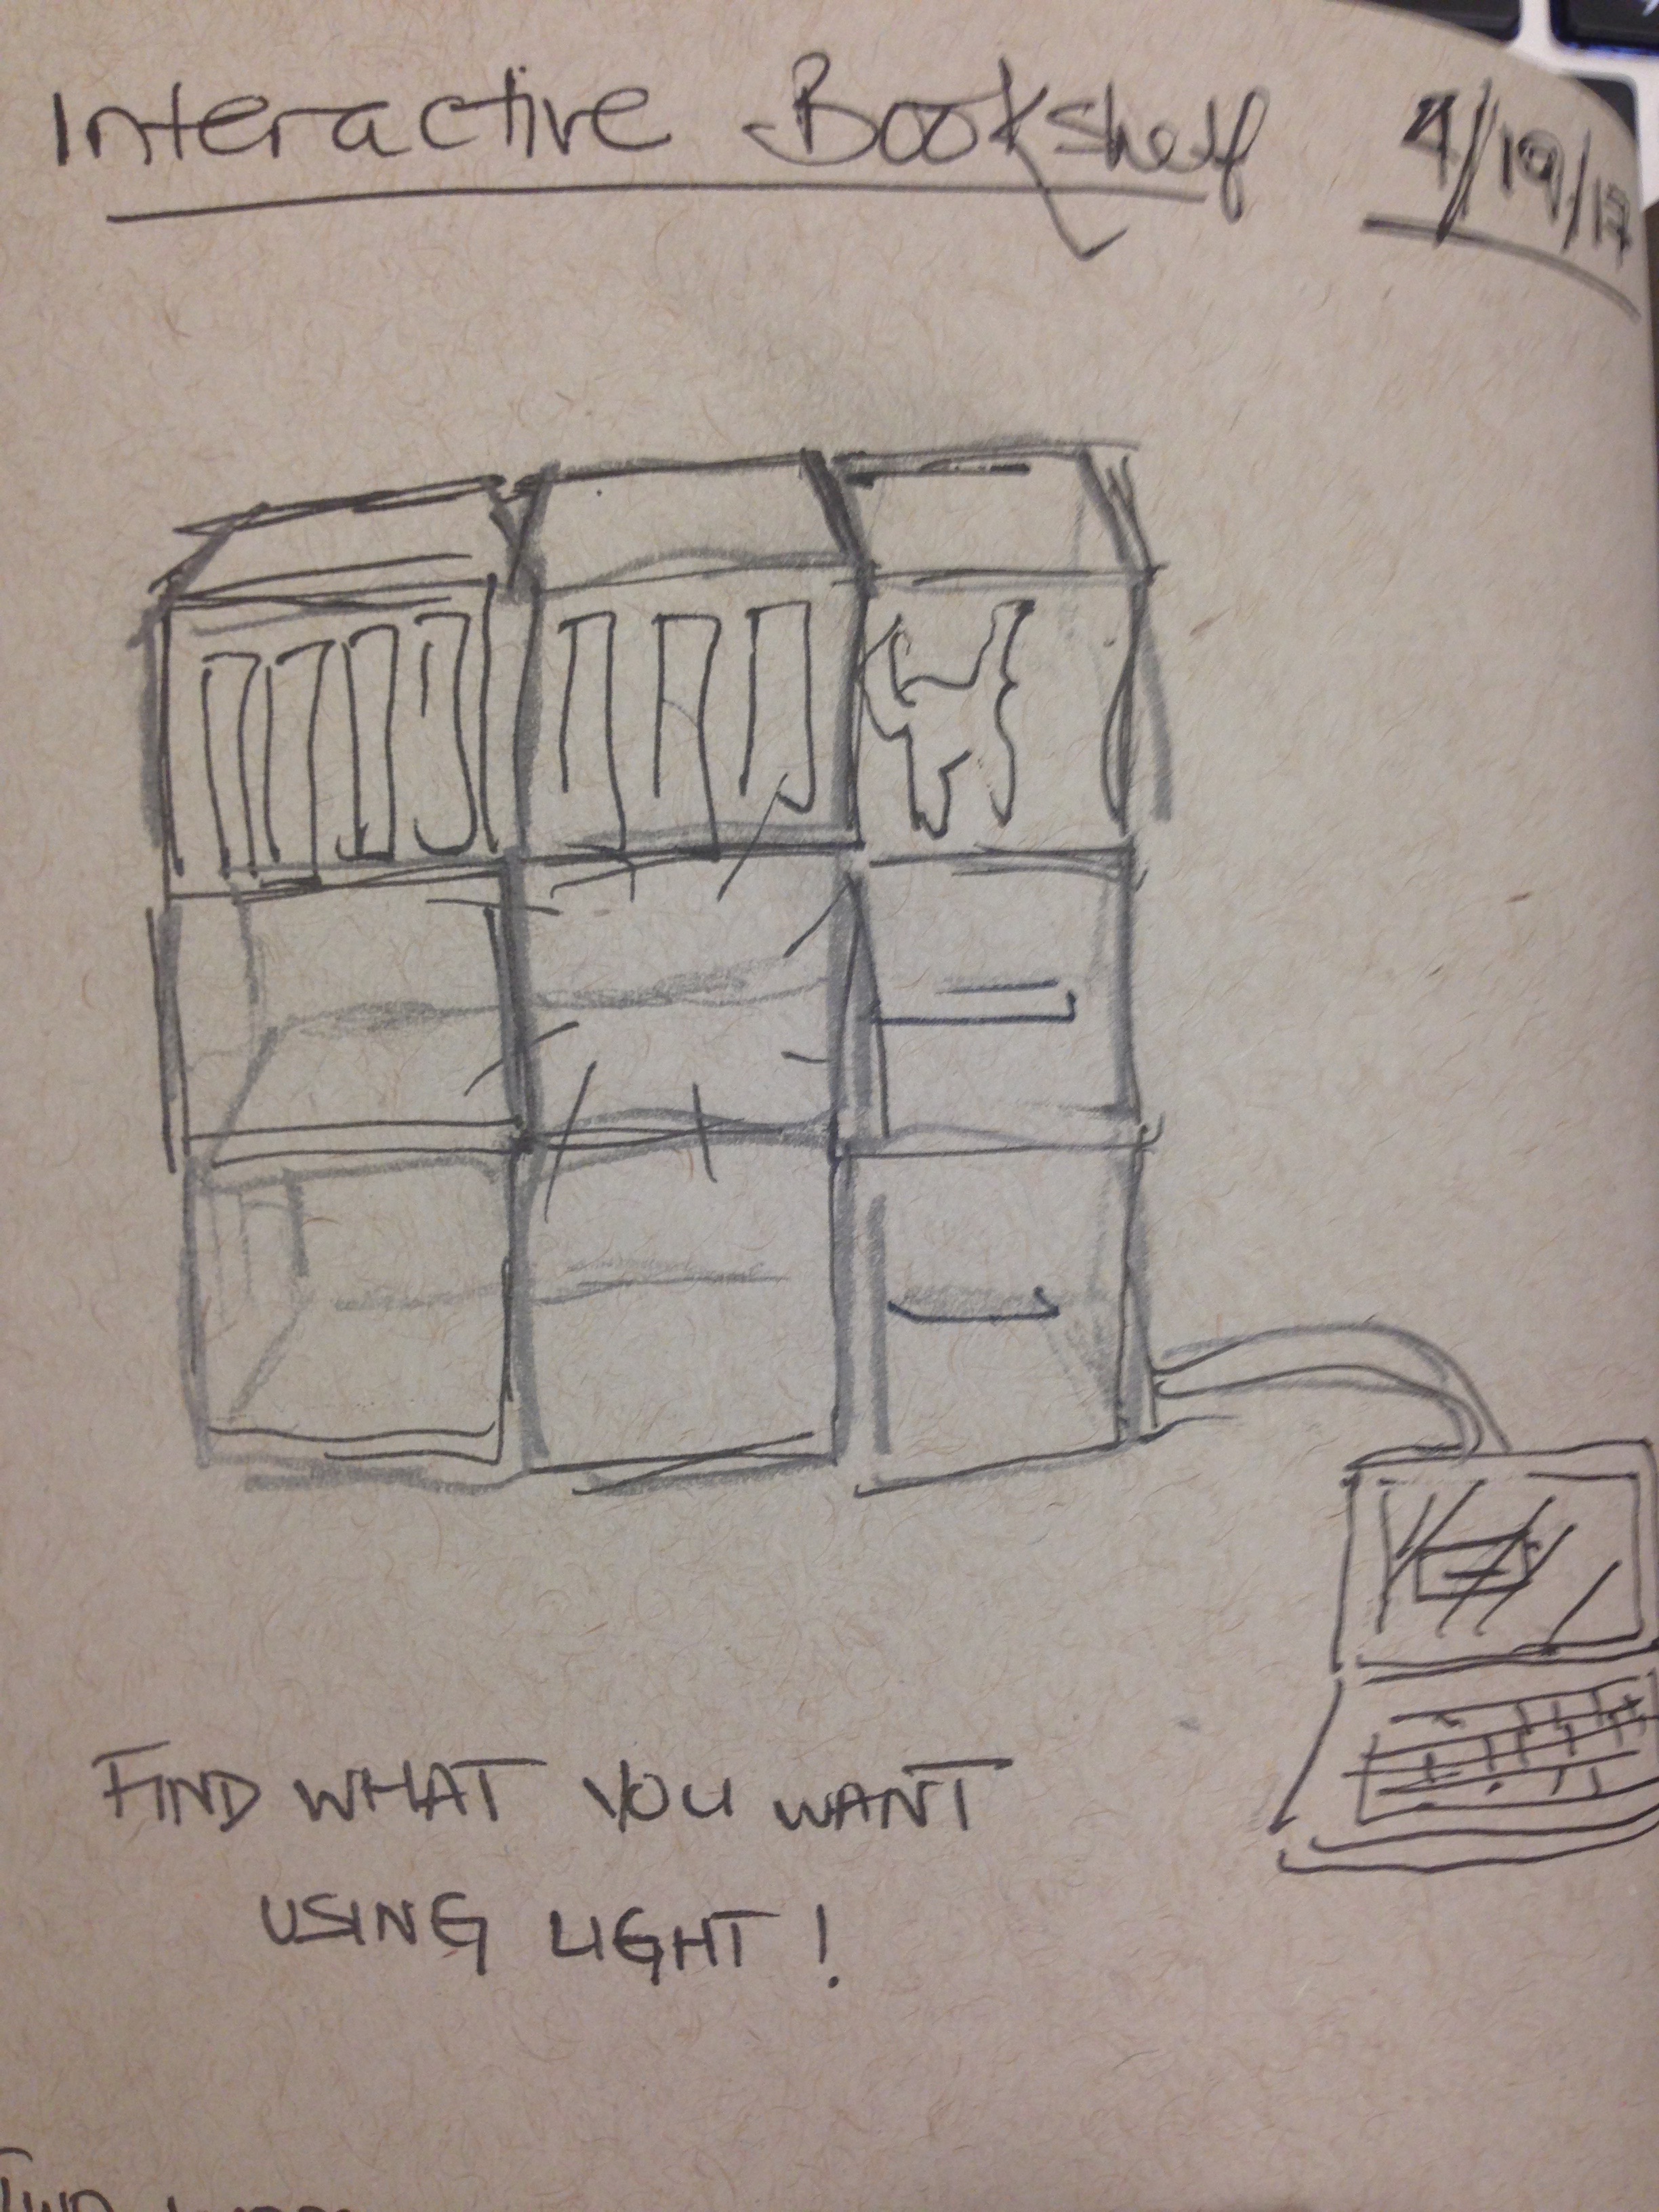 Interactive Bookshelf 4/19/17
FIND WHAT YOU WANT
USING LIGHT!